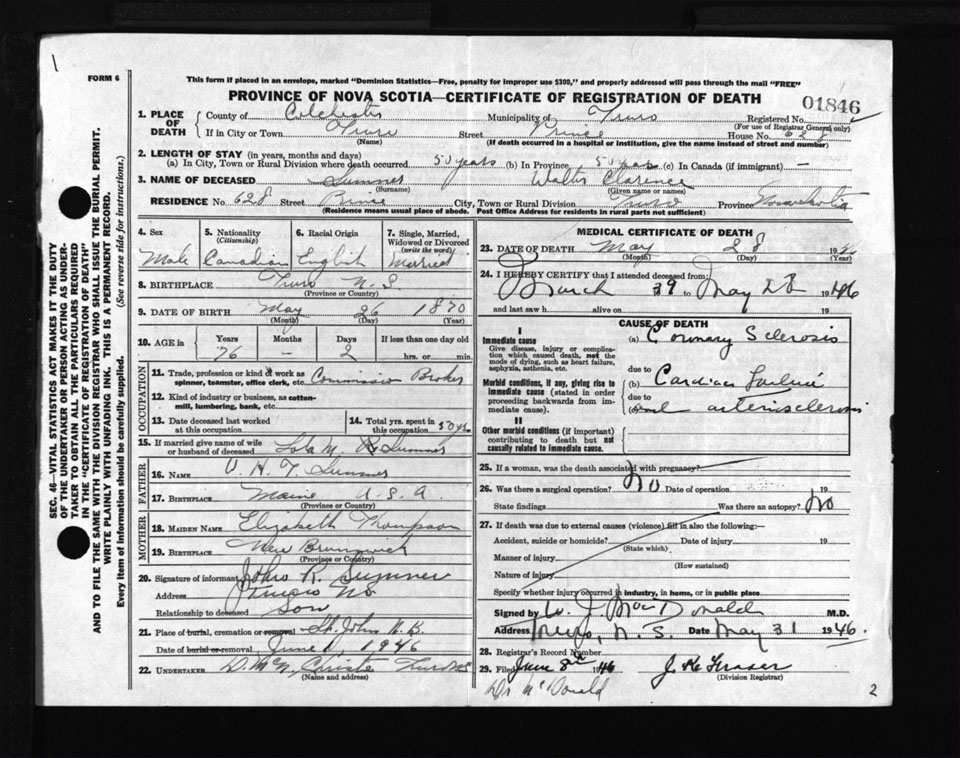 1
FORM 6
SEC. 46—VITAL STATISTICS ACT MAKES IT THE DUTY
OF THE UNDERTAKER OR PERSON ACTING AS UNDER-
TAKER TO OBTAIN ALL THE PARTICULARS REQUIRED
IN THE "CERTIFICATE OF REGISTRATION OF DEATH"
AND TO FILE THE SAME WITH THE DIVISION REGISTRAR WHO SHALL ISSUE THE BURIAL PERMIT.
WRITE PLAINLY WITH UNFADING INK. THIS IS A PERMANENT RECORD.
Every item of information should be carefully supplied. (See reverse side for instructions.)
This form if placed in an envelope, marked "Dominion Statistics—Free, penalty for improper use $300," and properly addressed will pass through the mail "FREE"
PROVINCE OF NOVA SCOTIA—CERTIFICATE OF REGISTRATION OF DEATH
01846
1. PLACE OF DEATH County of Colchester Municipality of Truro Registered No.
(For use of Registrar General only)
If in City or Town Truro Street Prince House No. 628
(Name) (If death occurred in a hospital or institution, give the name instead of street and number)
2. LENGTH OF STAY (in years, months and days)
(a) In City, Town or Rural Division where death occurred 50 years (b) In Province 50 years (c) In Canada (if immigrant) —
3. NAME OF DECEASED Sumner Walter Clarence
(Surname) (Given name or names)
RESIDENCE No. 628 Street Prince City, Town or Rural Division Truro Province Nova Scotia
(Residence means usual place of abode. Post Office Address for residents in rural parts not sufficient)
4. Sex Male
5. Nationality (Citizenship) Canadian
6. Racial Origin English
7. Single, Married, Widowed or Divorced (write the word) Married
8. BIRTHPLACE Truro N.S.
(Province or Country)
9. DATE OF BIRTH May 26 1870
(Month) (Day) (Year)
10. AGE in Years Months Days If less than one day
76 — 2 hrs. or min.
OCCUPATION
11. Trade, profession or kind of work as spinner, teamster, office clerk, etc. Commission Broker
12. Kind of industry or business, as cotton-mill, lumbering, bank, etc.
13. Date deceased last worked at this occupation
14. Total yrs. spent in this occupation 50 yrs
15. If married give name of wife or husband of deceased Lola M. Sumner
FATHER
16. NAME Sumner
17. BIRTHPLACE Maine U.S.A.
(Province or Country)
MOTHER
18. MAIDEN NAME Elizabeth Thompson
19. BIRTHPLACE New Brunswick
(Province or Country)
20. Signature of informant John R. Sumner
Address Truro NS
Relationship to deceased Son
21. Place of burial, cremation or removal St. John N.B.
Date of burial or removal June 1, 1946
22. UNDERTAKER Christie Truro NS
(Name and address)
MEDICAL CERTIFICATE OF DEATH
23. DATE OF DEATH May 28 194
(Month) (Day) (Year)
24. I HEREBY CERTIFY that I attended deceased from:
March 39 to May 28 1946
and last saw h alive on 19
CAUSE OF DEATH
I
Immediate cause
Give disease, injury or complication which caused death, not the mode of dying, such as heart failure, asphyxia, asthenia, etc.
(a) Coronary Sclerosis
due to
Morbid conditions, if any, giving rise to immediate cause (stated in order proceeding backwards from immediate cause).
(b) Cardiac Failure
due to
(c) and arteriosclerosis
II
Other morbid conditions (if important) contributing to death but not causally related to immediate cause.
25. If a woman, was the death associated with pregnancy?
26. Was there a surgical operation? No Date of operation 19
State findings Was there an autopsy? No
27. If death was due to external causes (violence) fill in also the following:—
Accident, suicide or homicide? Date of injury 19
(State which)
Manner of injury
(How sustained)
Nature of injury
Specify whether injury occurred in industry, in home, or in public place
Signed by W. J. MacDonald M.D.
Address Truro, N.S. Date May 31 1946.
28. Registrar's Record Number
29. Filed June 8th 1946 Fraser
(Division Registrar)
Dr McDonald
2